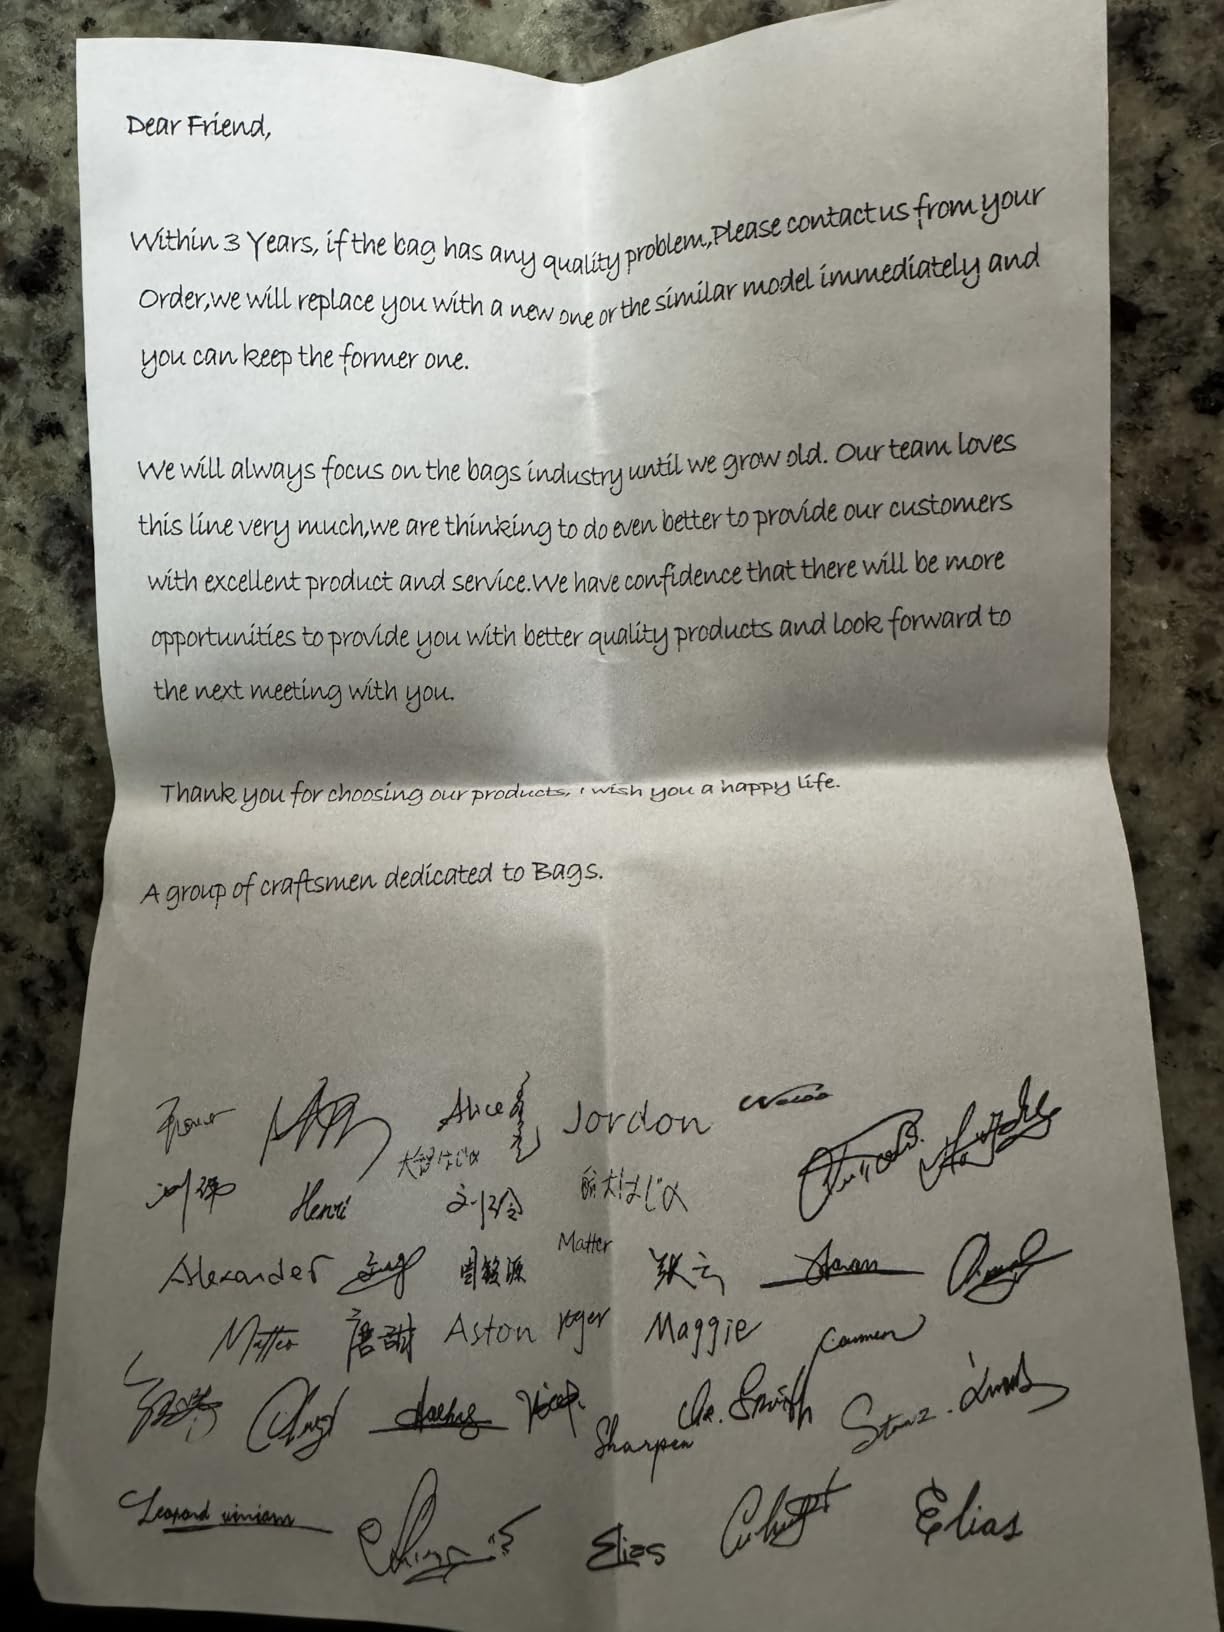 Dear Friend,
Within 3 Years, if the bag has any quality problem,Please contact us from your
Order,we will replace you with a new one or the similar model immediately and
you can keep the former one.
We will always focus on the bags industry until we grow old. Our team loves
this line very much,we are thinking to do even better to provide our customers
with excellent product and service.We have confidence that there will be more
opportunities to provide you with better quality products and look forward to
the next meeting with you.
Thank you for choosing our products, I wish you a happy life.
A group of craftsmen dedicated to Bags.
Alice Jordon
Henri
Alexander Matter
Matteo 唐甜 Aston Roger Maggie Carmen
Sharpen
Elias Elias